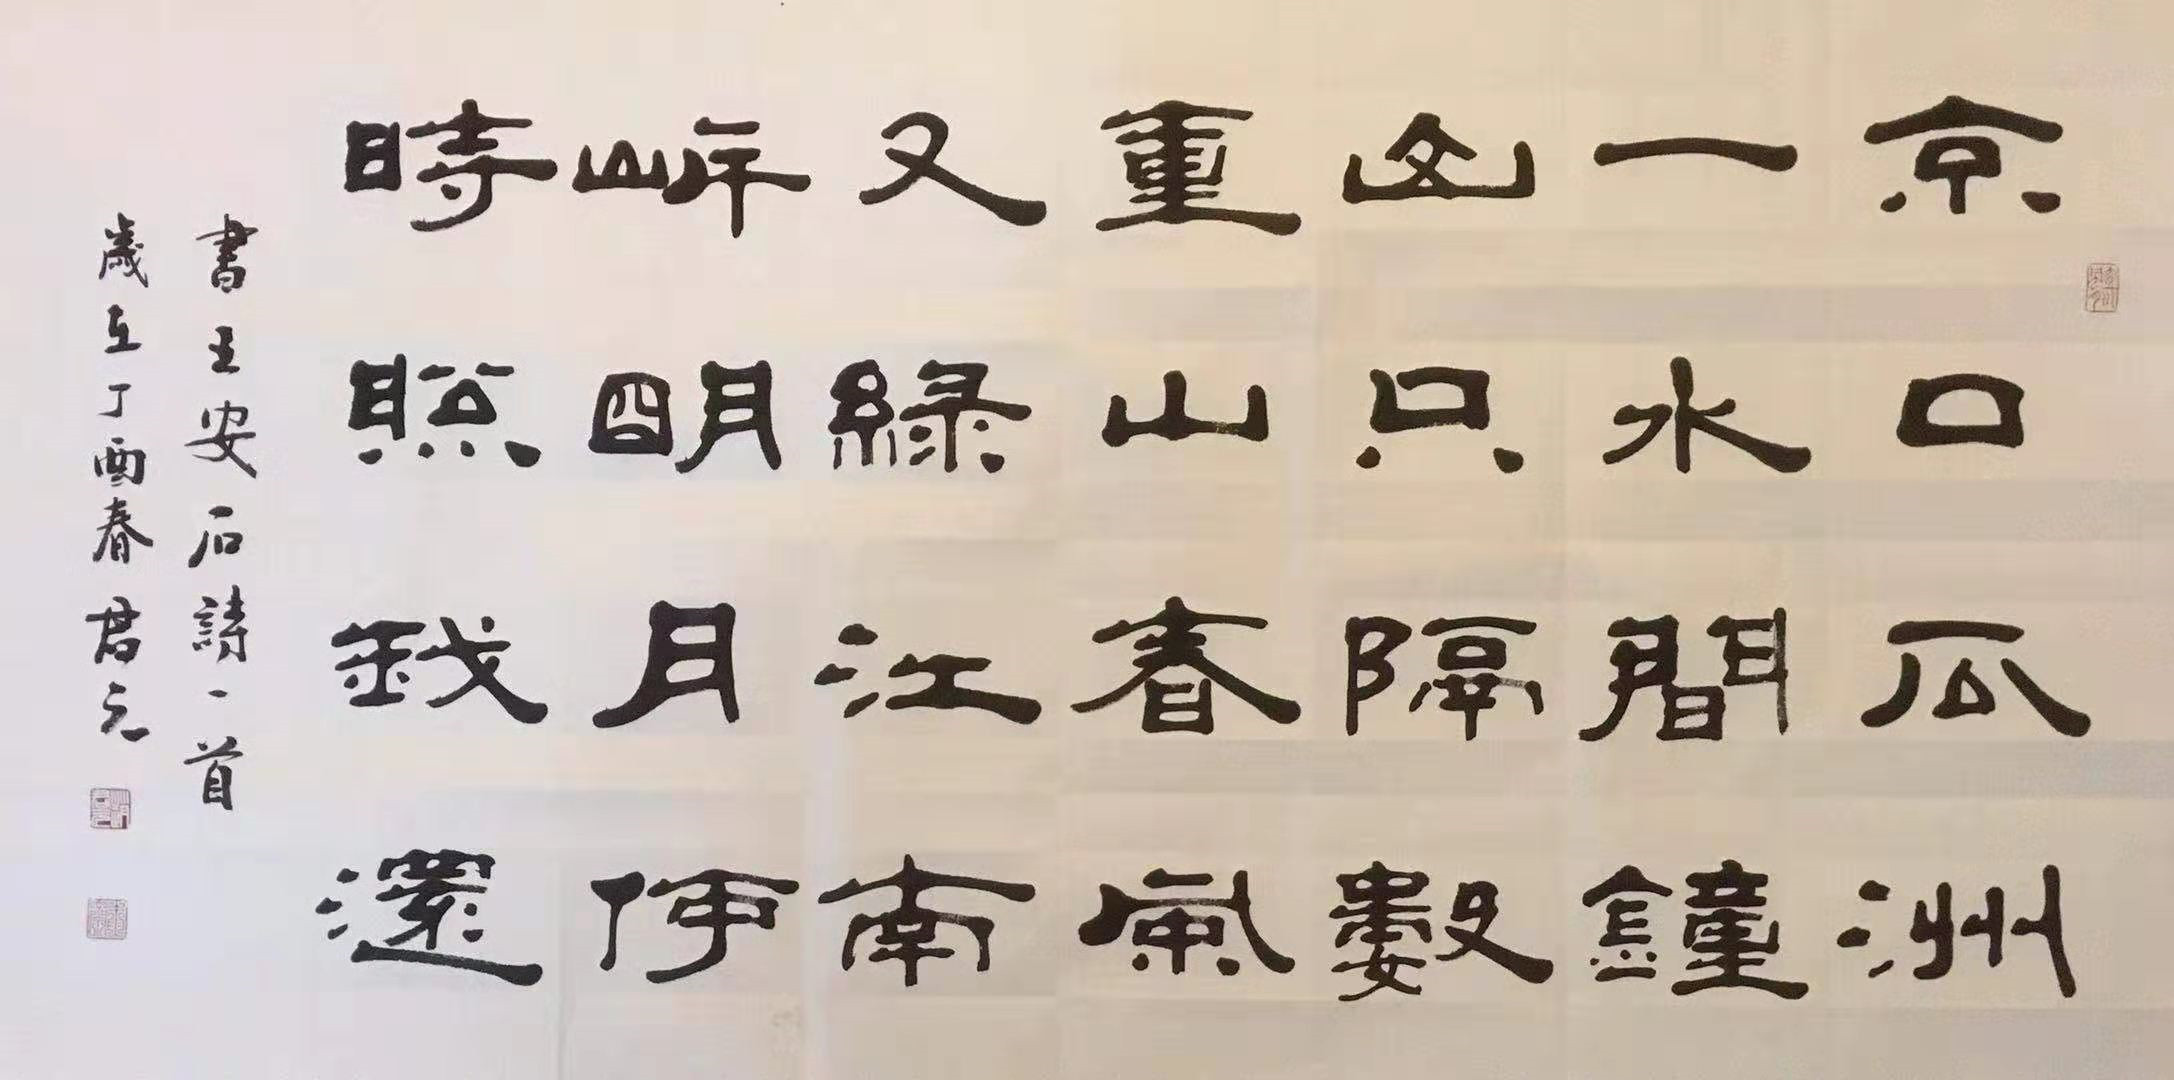 京口瓜洲
一水間鐘
山只隔數
重山春風
又緑江南
岸明月何
時照我還
書王安石詩一首
歲在丁酉春君元